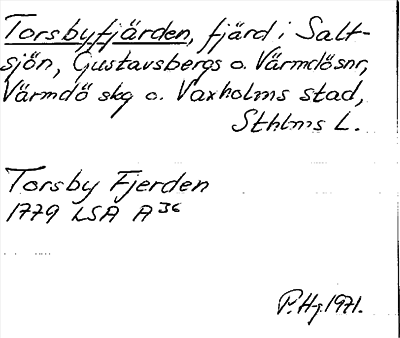 Torsbyfjärden, fjärd i Salt-
sjön, Gustavsbergs o. Värmdösnr,
Värmdö skg o. Vaxholms stad,
Sthlms L.
Torsby Fjerden
1779 LSA A36
P.Hg.1971.